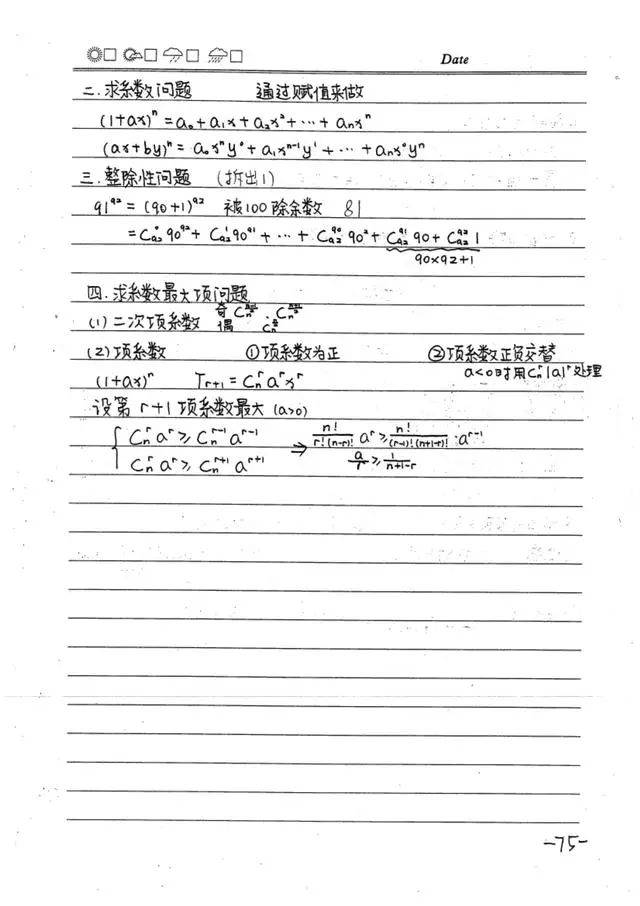 Date
二.求系数问题 通过赋值来做
(1+ax)ⁿ = a₀+a₁x+a₂x²+⋯+aₙxⁿ
(ax+by)ⁿ = a₀xⁿy⁰+a₁xⁿ⁻¹y¹+⋯+aₙx⁰yⁿ
三.整除性问题 (拆出1)
91⁹² = (90+1)⁹² 被100除余数 81
=C₉₂⁰90⁹²+C₉₂¹90⁹¹+⋯+C₉₂⁹⁰90²+C₉₂⁹¹90+C₉₂⁹²1
90×92+1
四.求系数最大项问题
(1)二次项系数 奇 偶
(2)项系数 ①项系数为正 ②项系数正负交替
a<0时用Cₙʳ|a|ʳ处理
(1+ax)ⁿ Tᵣ₊₁=Cₙʳaʳxʳ
设第r+1项系数最大(a>0)
{ Cₙʳaʳ≥Cₙʳ⁻¹aʳ⁻¹ ⇒ n!/(r!(n-r)!) aʳ≥ n!/((r-1)!(n+1-r)!)·aʳ⁻¹
Cₙʳaʳ≥Cₙʳ⁺¹aʳ⁺¹ a/r≥1/(n+1-r)
-75-